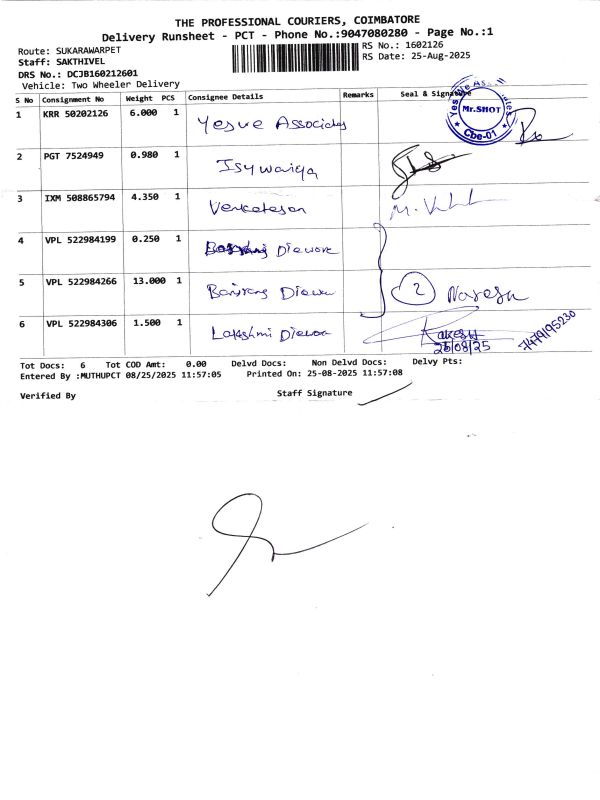 THE PROFESSIONAL COURIERS, COIMBATORE
Delivery Runsheet - PCT - Phone No.:9047080280 - Page No.:1
Route: SUKARAWARPET
RS No.: 1602126
Staff: SAKTHIVEL
RS Date: 25-Aug-2025
DRS No.: DCJB160212601
Vehicle: Two Wheeler Delivery
S No Consignment No Weight PCS Consignee Details Remarks Seal & Signature
1 KRR 50202126 6.000 1 Yesue Associates
Mr.SHOT
Cbe-01
2 PGT 7524949 0.980 1
3 IXM 508865794 4.350 1 Venkatesan
4 VPL 522984199 0.250 1
5 VPL 522984266 13.000 1 2 Naresh
6 VPL 522984306 1.500 1 Lakshmi Rakesh
25/08/25
Tot Docs: 6 Tot COD Amt: 0.00 Delvd Docs: Non Delvd Docs: Delvy Pts:
Entered By :MUTHUPCT 08/25/2025 11:57:05 Printed On: 25-08-2025 11:57:08
Verified By Staff Signature